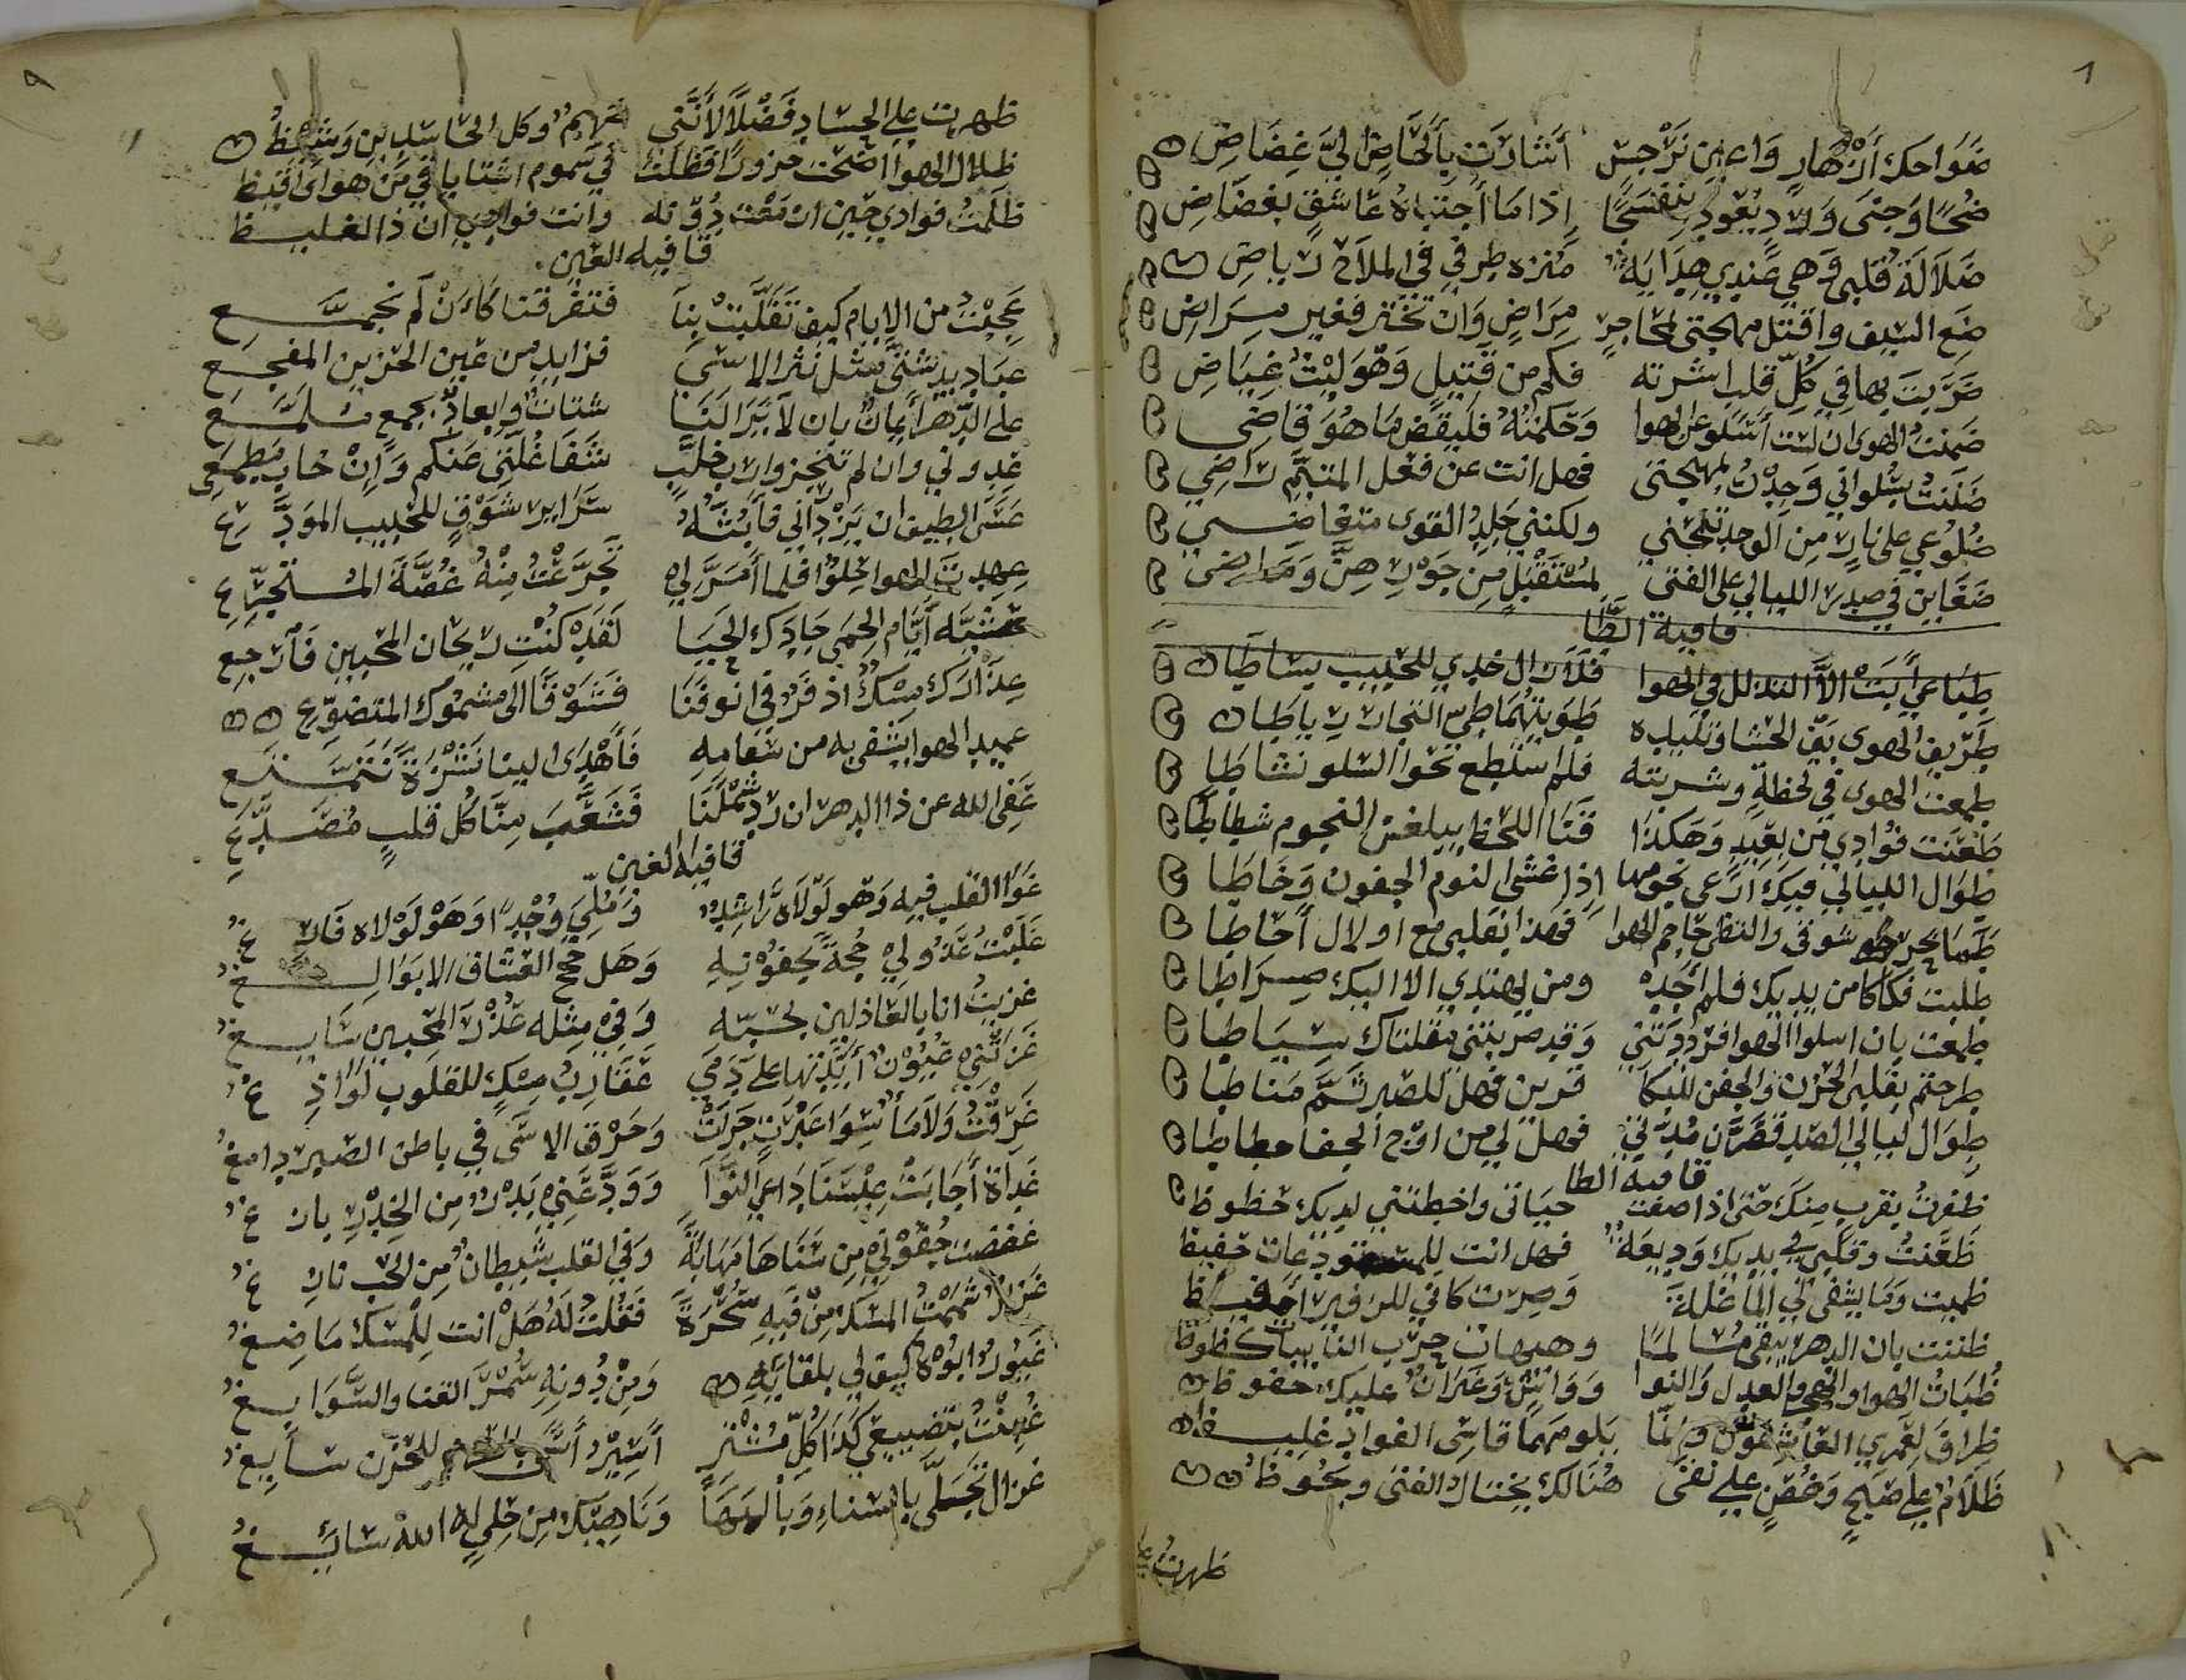 ضواحك أزهار واعين نرجس أشارت بألحاض ليّ غضاض
ضحًا وجنى ولاد يعود بنفسجًا إذا ما أجتباه عاشق بغضاض
ضلالة قلبى وهي عندي هداية منزه طرفي في الملاح رياض
ضع السيف واقتل مهجتى لمحاجر مراضٍ وان تختر فغير مراض
ضربت بها في كل قلب اشرته فكم من قتيل وهو ليث غياض
ضمنت الهوى ان لست أسلو عن الهوا وحكمته فليقض ما هو قاضى
ضللت بسلواني وجدت لمهجتى فهل انت عن فعل المتيّم راضي
ضلوعي على نار من الوجد تلتجني ولكننى جلد القوى متغاضى
ضغاين في صدر الليالي على الفتى لمستقبل من جور هنّ وماضى
قافية الطا
طباعي أبت الا التذلل في الهوا فلازال خدي للحبيب بساطا
طريف الهوى بقّ الحشا وتليده طويتهما طي التجار رياطا
طمعت الهوى في لحظة وشربته فلم استطع نحو السلو نشاطا
طعنت فؤادي من بعيد وهكذا قنا اللحظ يبلغن النجوم شطاطا
طوال الليالي فيك ارعى نجومها اذا غشى النوم الجفون وخاطا
شوقى والنظى جاحم الهوا فهذا بقلبى مع اولال أحاطا
طلبت فكاكا من يديك فلم أجد ومن يهتدي الا اليك صراطا
طمعت بان اسلوا الهوا فرددتنى وقد ضربتنى مقلتاك سياطا
طرحتم بقلبى الحزن والجفن للبكا قرين فهل للصبر ثمّ مناطا
طوال ليالي الصد قصّرن مدتي فهل لي من اوج الجفا مطاطا
قافيه الظا
ظفرت بقرب منك حتى اذا صفت حياتى واخطتنى لديك حظوظ
ظعنت وقلبى في يديك وديعة فهل انت للمستودعات حفيظ
ظميت وما يشفى لي الما غلة وصرت كانى للزفير
ظننت بان الدهر يبقى مسالما وهيهات حرب النايبات كظوظ
ظبات الهوا والهجر والعدل والنوا وواشٍ وغيران عليك حفوظ
ظراف لعمري العاشقون وربما بلومهما قاسى الفواد غليظ
ظلام على صبح وغصن على نقى هنالك يختال الفتى ويحوظ
ظهرت على

ظهرت على الحساد فضلًا لأننى فهيم وكل الحاسدين وشيظ
ظلال الهوا اضحت حرورا فظلت في سموم اشتايا في من هواى أقيظ
ظلمت فوادي حين ان مقت ذُو قه وانت فوادي ان ذا لغليظ
قافيه العين
عجبت من الايام كيف تقلبت بنا فتفرقتا كاءن لم نجمع
عباديد شتى مثل نثر الاسى فزايد من عين الحزين المفجع
على الدهر أعان بان لا يرا لنا شتات وابعاد بجمع ملمّع
عدونى وان لم تنجزوا لابخلب شفا غلتى منكم وان خاب مطمعى
عسى الطيف ان يزداني فأبثه سراير شوق للحبيب المودّع
عهدت الهوا حلوًا فلما أمرّ لي تجرّعت منه غصة المتجرّع
عشية أيام الحمى جادك الحيا لقد كنت ريحان المحبين فارجع
عذارك مسك أذفر في انوفنا فشوقا الى مشمومك المتضوّع
عميد الهوا يشفى به من سقامه فأهدى الينا نشرة تتمتع
عفى الله عن ذا الدهر ان ردّ شملنا فشعّب منا كل قلب مصدّع
قافية الغين
غوا القلب فيه وهو لولاه راشد وملي وجدا وهو لولاه فارغ
غلبت عذولي حجة بجفونه وهل حجج العشاق الا بوالغ
غريت انا بالعاذلين بحبه وفي مثله عذر المحبين سايغ
غزتنى عيون أيّدتها على دمي عقارب مسك للقلوب لواذغ
غرقت ولا ما سوا عبرت جرت وحرق الاسى في باطن الصبر دامغ
غداة أجابت عيسنا داعي النوا وودعنى بدر من الخدر بازغ
غفضت جفوني من سناها مهابة وفي القلب شيطان من الحب نازغ
غزال شممت المسك من فيه سحرة فقلت له هل انت للمسك ماضغ
غيور ابوه كيف لي بلقائه ومن دونه سمر القنا والسوابغ
غبنت بتضييعي كذا كل مشتر أسير أسى للحزن سابغ
غزال تحلى بالسناء وبالبها وناهيك من حلي له الله سائغ